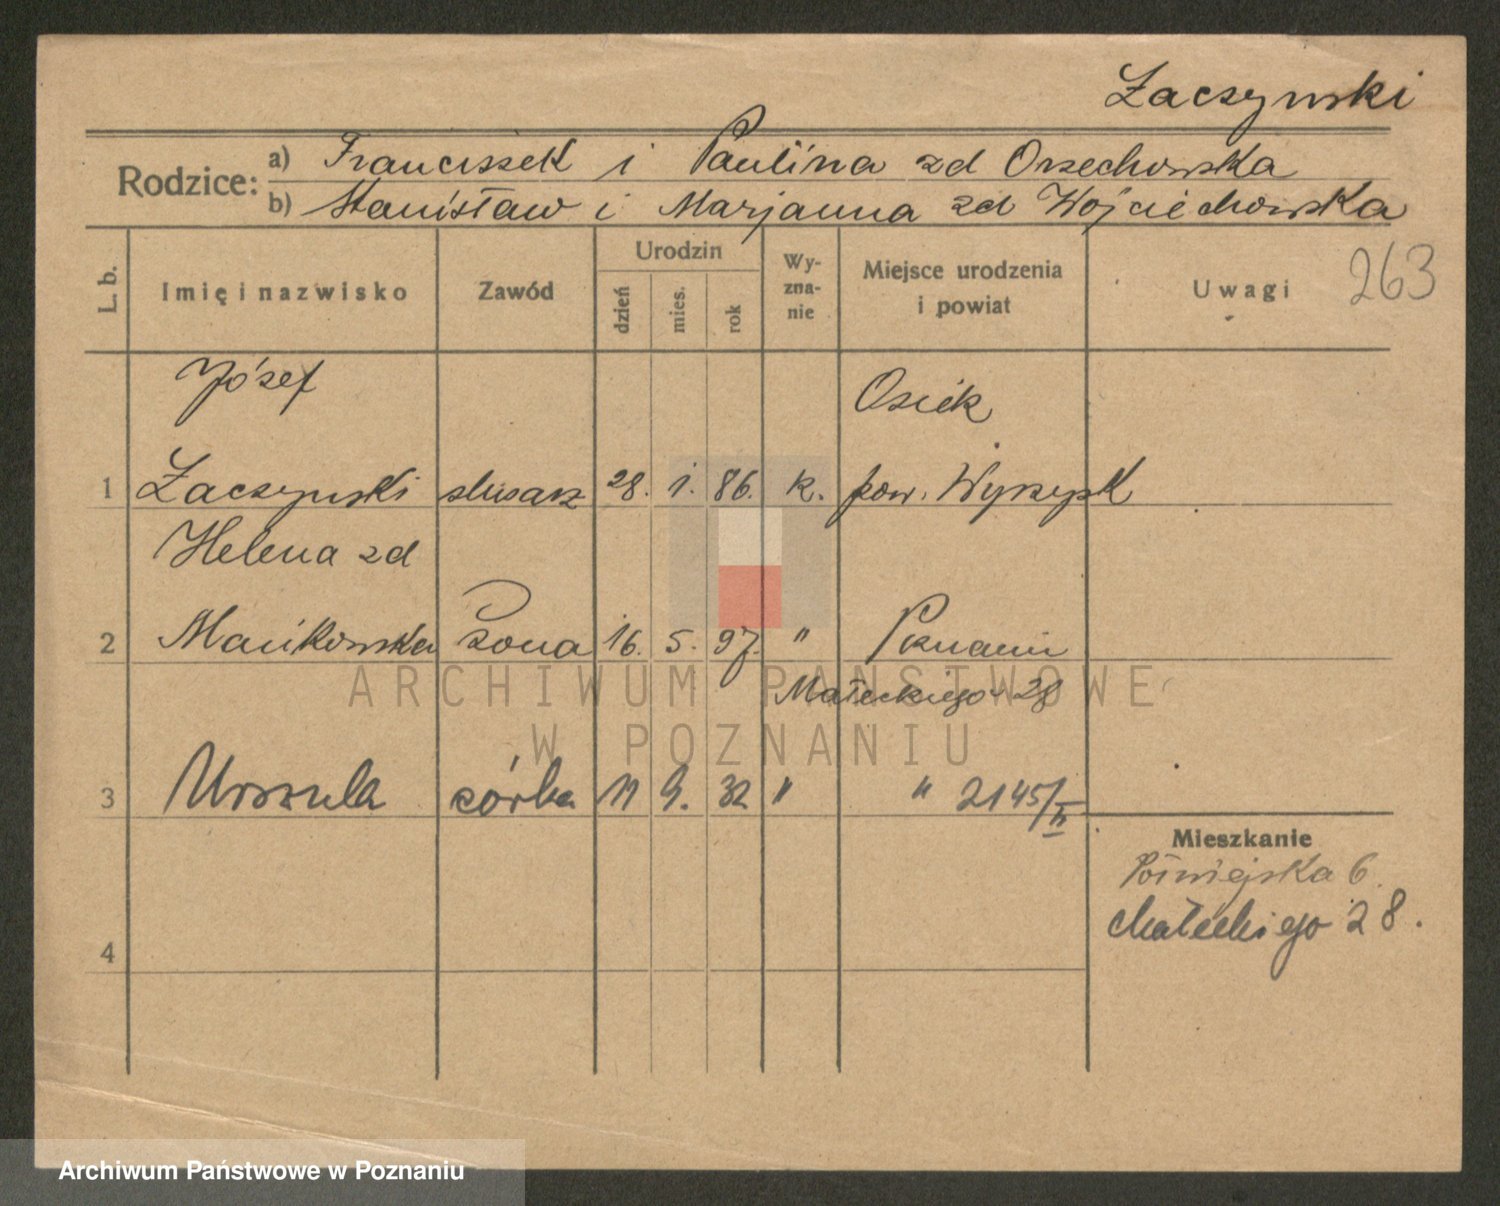 Łaczynski
Rodzice:
a) Franciszek i Paulina zd Orzechowska
b) Stanisław i Marjanna zd Wojciechowska
L. b.
Imię i nazwisko
Zawód
Urodzin
dzień
mies.
rok
Wy-
zna-
nie
Miejsce urodzenia
i powiat
Uwagi
263
Józef
Osiek
1 Łaczynski slusarz 28. 1. 86. k. pow. Wyrzysk
Helena zd
2 Mańkowska żona 16. 5. 97. " Poznaniu
Małeckiego 28
3 Urszula córka 11 9. 32 " " 2145/II
Mieszkanie
6
Małeckiego 28.
4
ARCHIWUM PAŃSTWOWE
W POZNANIU
Archiwum Państwowe w Poznaniu